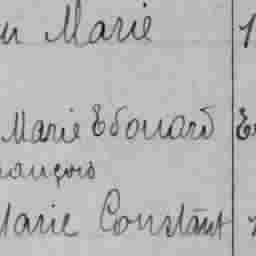 Marie
Marie Edouard
rançois
Marie Constant